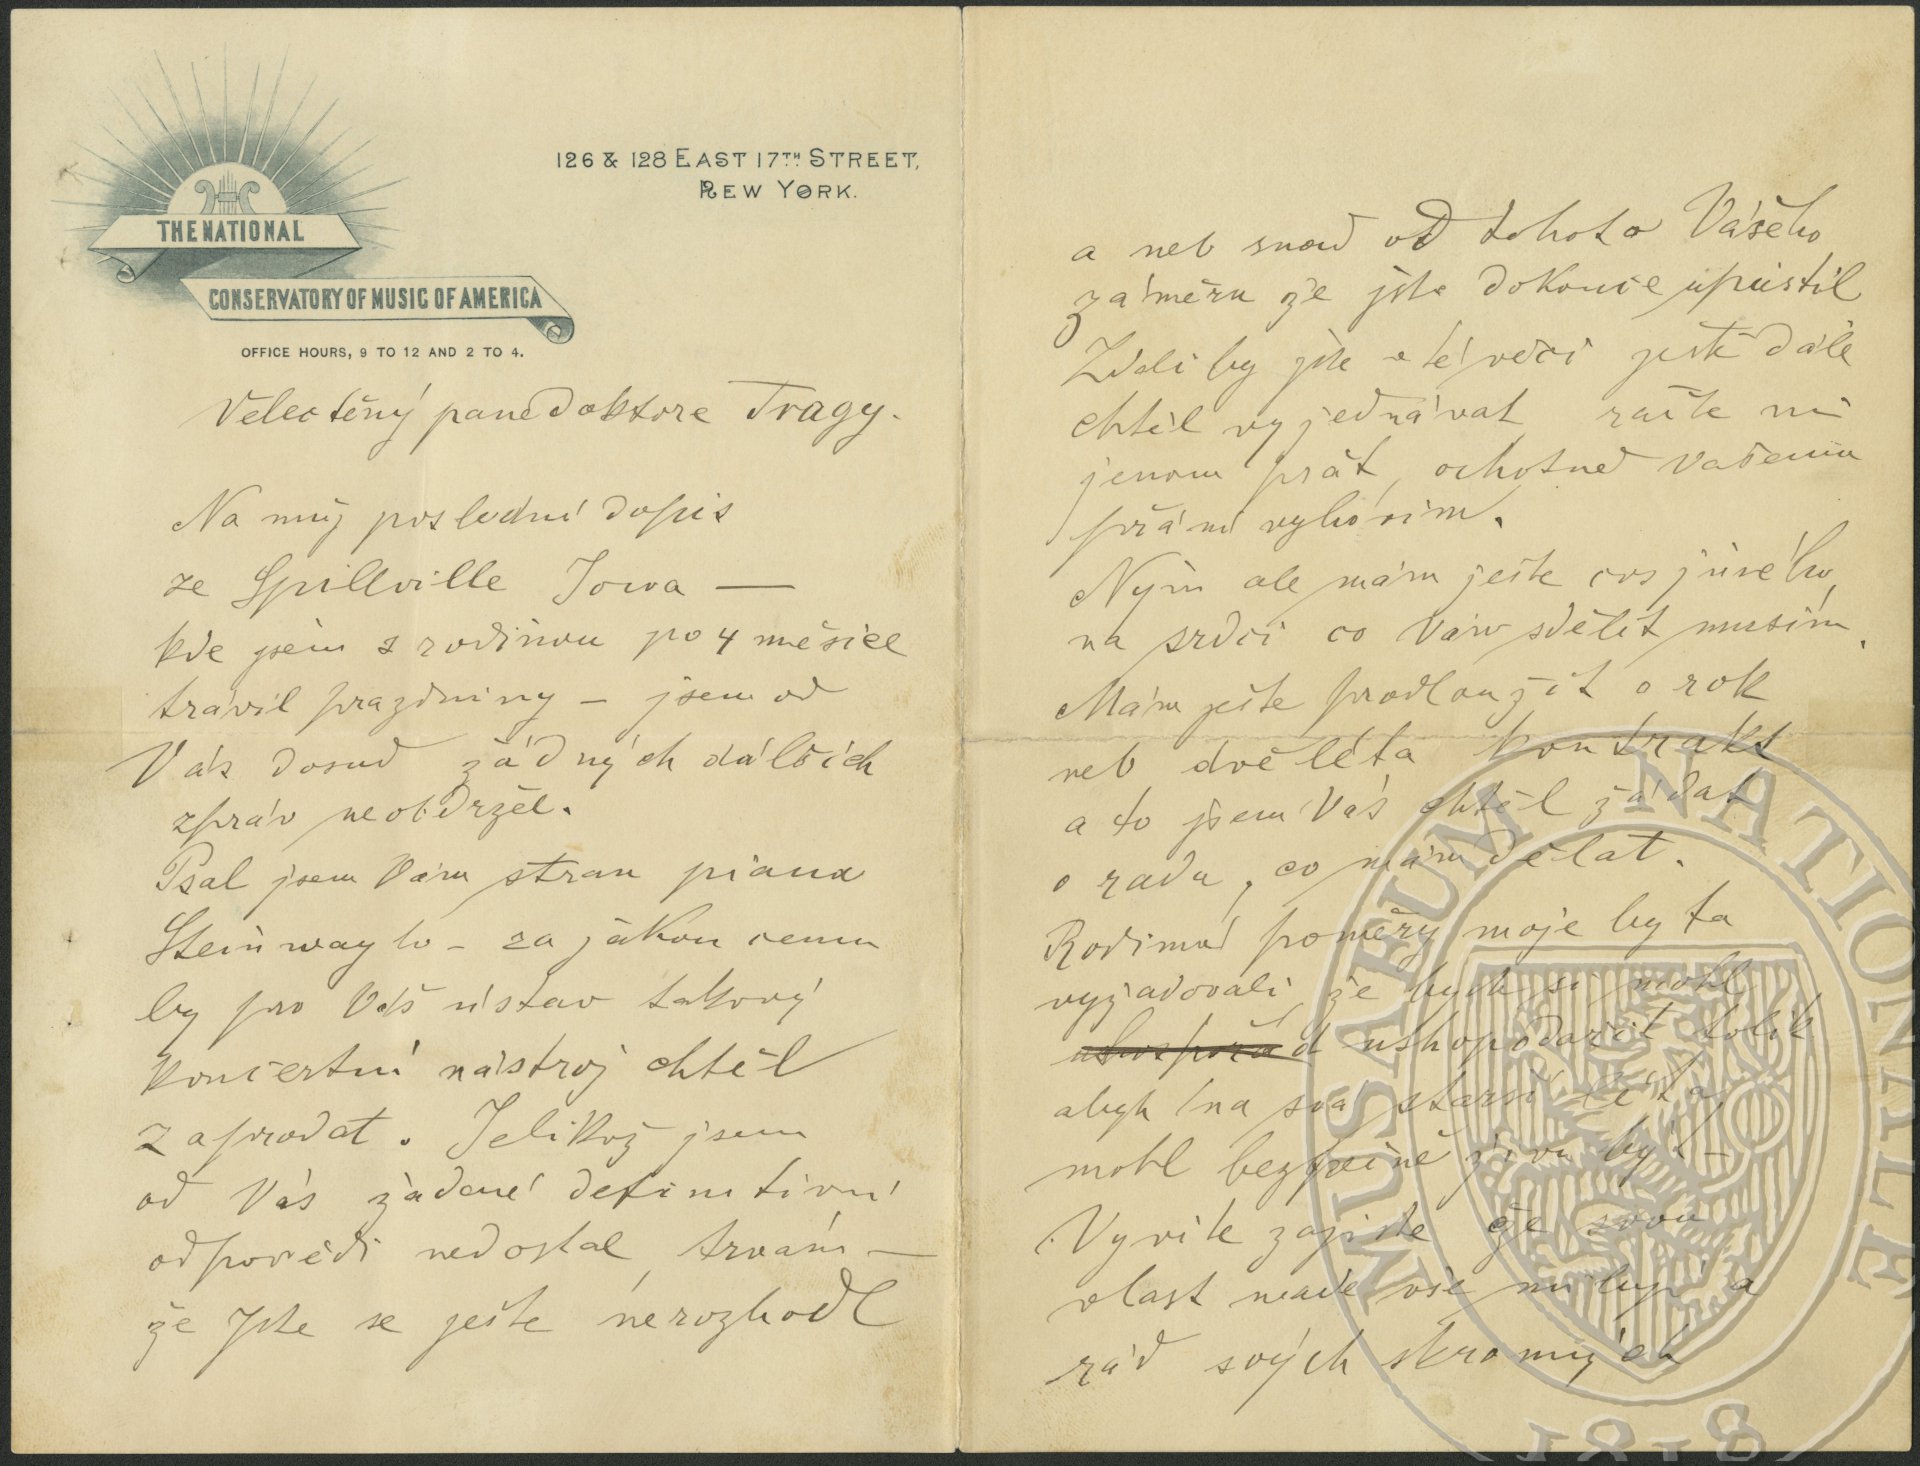 THE NATIONAL
CONSERVATORY OF MUSIC OF AMERICA
OFFICE HOURS, 9 TO 12 AND 2 TO 4.
126 & 128 EAST 17TH STREET,
NEW YORK.
Velectěný pane Doktore Tragy.
Na můj poslední dopis
ze Spillville Iowa —
kde jsem s rodinou po 4 měsíce
trávil prazdniny – jsem od
Vás dosud žádných dálších
zpráv neobdržel.
Psal jsem Vám stran piana
Steinwayho – za jakou cenu
by pro Váš ústav takový
koncertní nástroj chtěl
zaprodat. Jelikož jsem
od Vás žádané definitivní
odpovědi nedostal, trvám —
že Jste se ještě nerozhodl
a neb snad od tohoto Vášeho
záměru že jste dokonce upustil
Zdali by jste v té věci ještě dále
chtěl vyjednávat račte mi
jenom psát, ochotně Vašemu
přání vyhovím.
Nyní ale mám ješte cos jiného
na srdci co Vám sdělit musím.
Mám ješte prodloužit o rok
neb dvě léta kontrakt
a to jsem Vás chtěl žádat
o radu, co mám dělat.
Rodinné poměry moje by ta
vyžadovali, že bych si mohl
ushopodařit tolik
abych na svá starší léta
mohl bezpečně živ být –
Vy víte zajiste že svou
vlast nade vše miluji a
rád svých skromných
MUSAEUM NATIONALE
1818